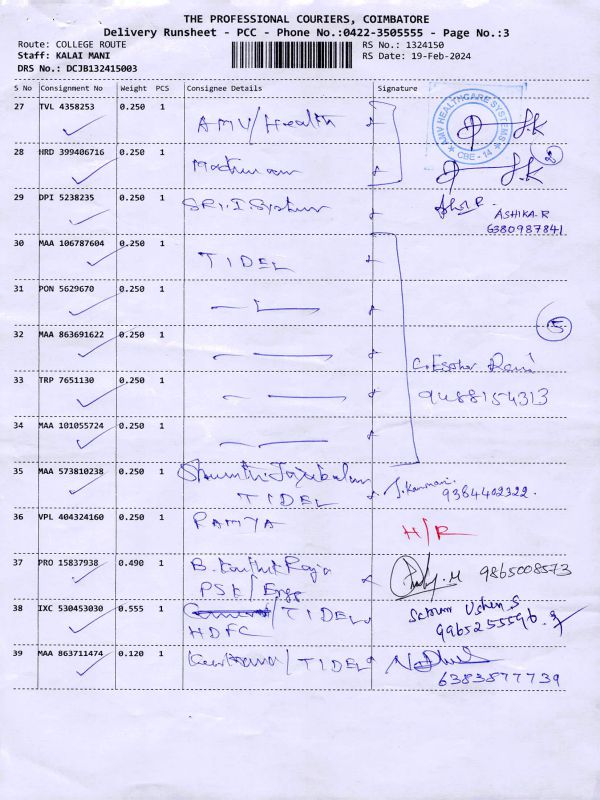 THE PROFESSIONAL COURIERS, COIMBATORE
Delivery Runsheet - PCC - Phone No.:0422-3505555 - Page No.:3
Route: COLLEGE ROUTE RS No.: 1324150
Staff: KALAI MANI RS Date: 19-Feb-2024
DRS No.: DCJB132415003
S No Consignment No Weight PCS Consignee Details Signature
27 TVL 4358253 0.250 1 AMV/Health
AMV HEALTHCARE SYSTEMS
CBE - 14
28 HRD 399406716 0.250 1 2
29 DPI 5238235 0.250 1 SRI.I.System
ASHIKA.R
6380987841
30 MAA 106787604 0.250 1 TIDEL
31 PON 5629670 0.250 1
32 MAA 863691622 0.250 1 5
33 TRP 7651130 0.250 1 9488154313
34 MAA 101055724 0.250 1
35 MAA 573810238 0.250 1
TIDEL 9384402322.
36 VPL 404324160 0.250 1 RAMYA H/R
37 PRO 15837938 0.490 1 B. Karthik Raja 9865008573
PSK/Engg
38 IXC 530453030 0.555 1 /TIDEL
HDFC 9965255596
39 MAA 863711474 0.120 1 /TIDEL
6383877739